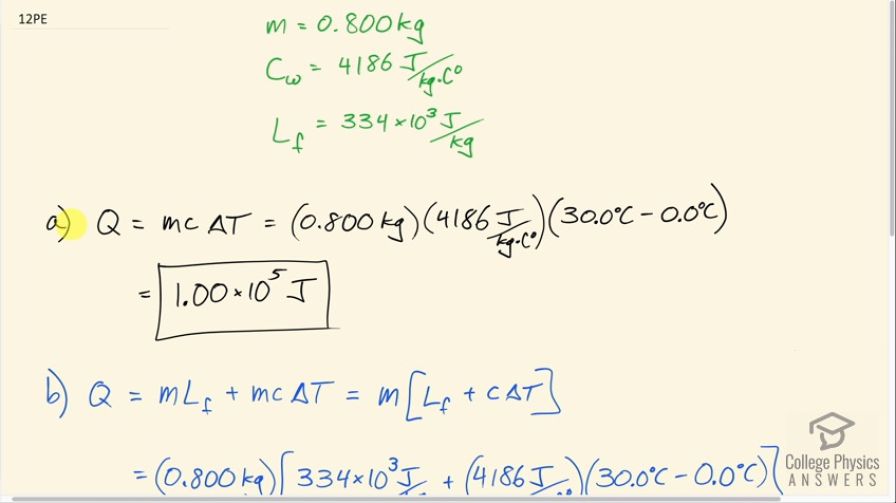 12PE
m = 0.800 kg
C_w = 4186 J/kg·C°
L_f = 334×10³ J/kg
a) Q = mcΔT = (0.800 kg)(4186 J/kg·C°)(30.0°C − 0.0°C)
= 1.00×10⁵ J
b) Q = mL_f + mcΔT = m[L_f + cΔT]
= (0.800 kg)[334×10³ J/ + (4186 J/)(30.0°C − 0.0°C)]
College Physics
ANSWERS